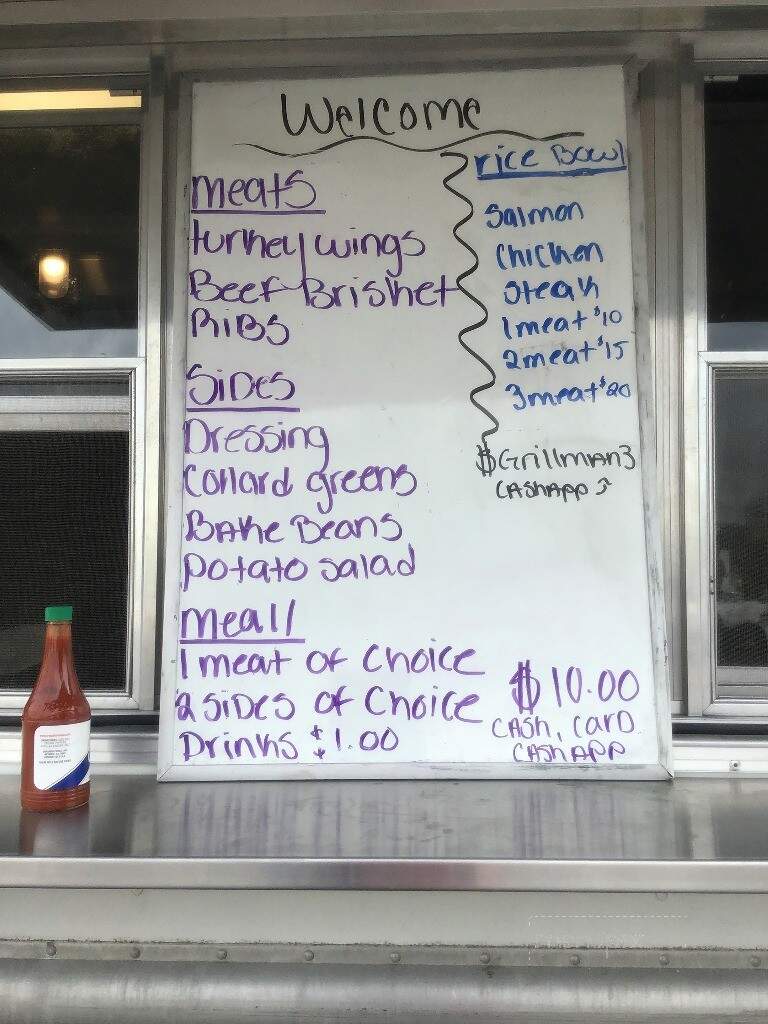 Welcome
Meats
turkey wings
Beef Brisket
RiBS
Sides
Dressing
Collard greens
Bake Beans
Potato salad
Meal
1 meat of choice
2 sides of choice
Drinks $1.00
rice Bowl
Salmon
Chicken
Steak
1 meat $10
2 meat $15
3 meat $20
$Grillman3
CASHAPP
$10.00
CASH, CARD
CASH APP